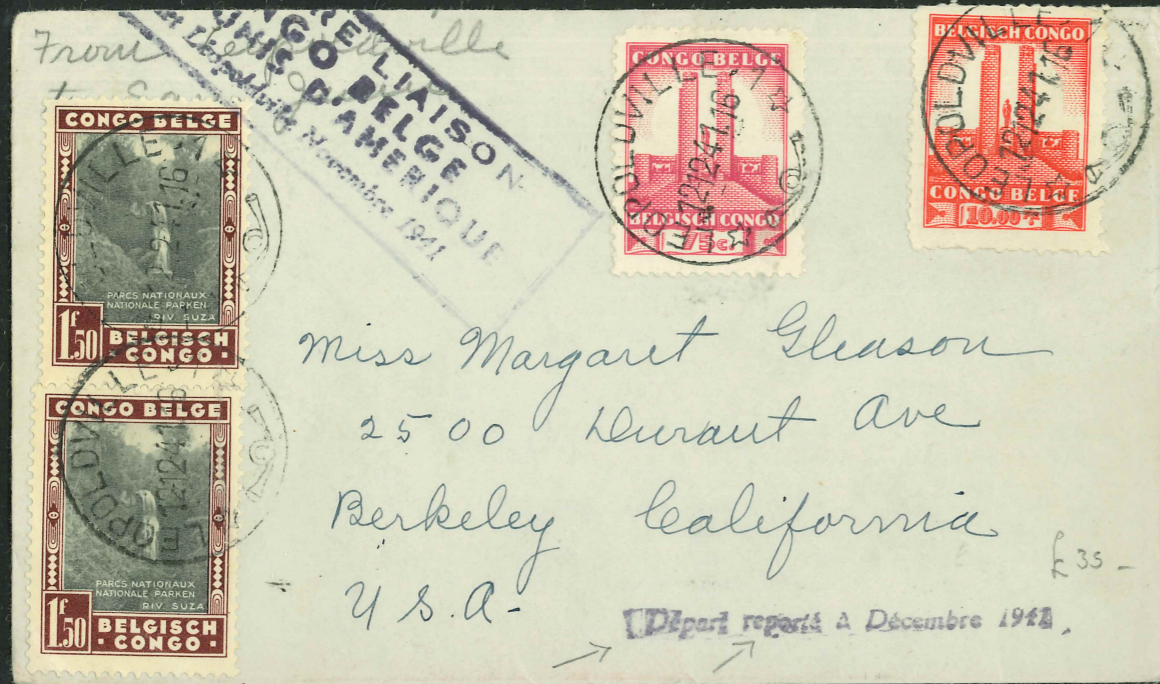 From Leopoldville
RE LIAISON
CONGO BELGE
UNIS D'AMERIQUE
Léopoldville Novembre 1941
CONGO BELGE
PARCS NATIONAUX
NATIONALE PARKEN
RIV SUZA
1f50
BELGISCH
· CONGO ·
LEOPOLDVILLE-1
CONGO BELGE
PARCS NATIONAUX
NATIONALE PARKEN
RIV SUZA
1f50
BELGISCH
· CONGO ·
LEOPOLDVILLE
121241.16
CONGO BELGE
BELGISCH CONGO
75c
LEOPOLDVILLE-1
121241.16
BELGISCH CONGO
CONGO BELGE
10.00 Fr
LEOPOLDVILLE-1
121241.16
Miss Margaret Gleason
2500 Durant Ave
Berkeley California
U.S.A-
£35-
Départ reporté à Décembre 1941.